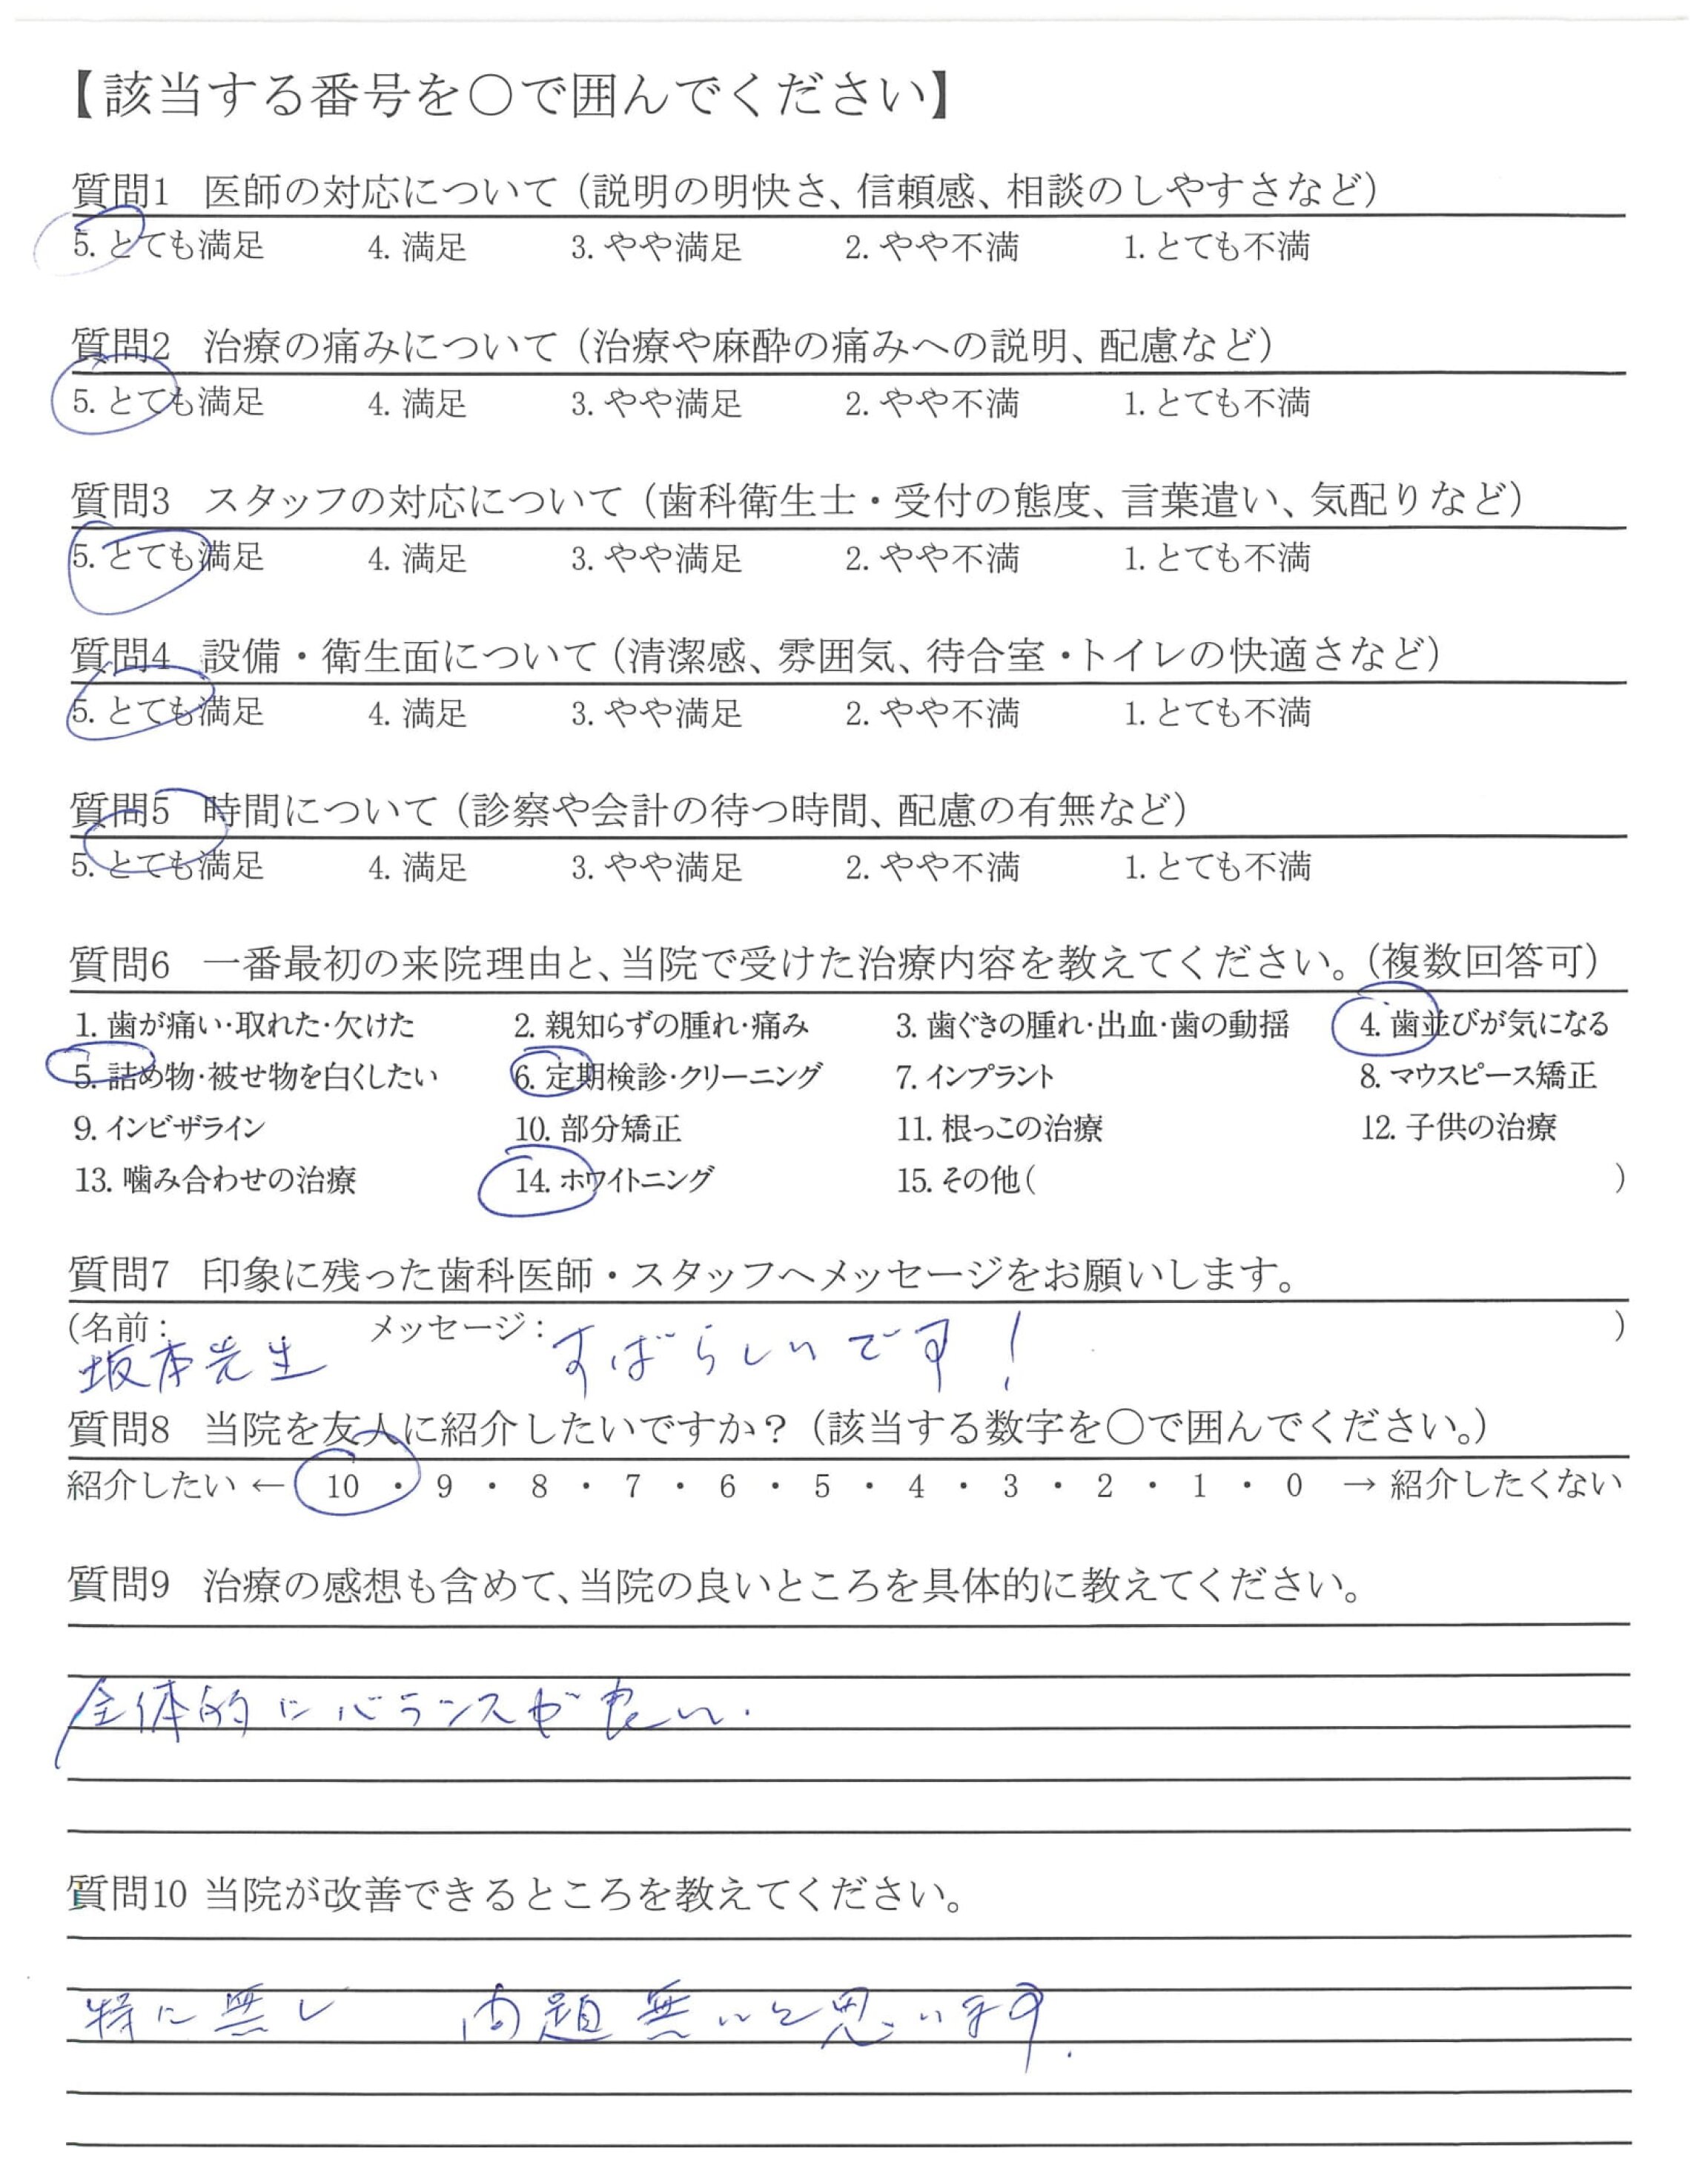 【該当する番号を○で囲んでください】
質問1 医師の対応について（説明の明快さ、信頼感、相談のしやすさなど）
5. とても満足 4. 満足 3. やや満足 2. やや不満 1. とても不満
質問2 治療の痛みについて（治療や麻酔の痛みへの説明、配慮など）
5. とても満足 4. 満足 3. やや満足 2. やや不満 1. とても不満
質問3 スタッフの対応について（歯科衛生士・受付の態度、言葉遣い、気配りなど）
5. とても満足 4. 満足 3. やや満足 2. やや不満 1. とても不満
質問4 設備・衛生面について（清潔感、雰囲気、待合室・トイレの快適さなど）
5. とても満足 4. 満足 3. やや満足 2. やや不満 1. とても不満
質問5 時間について（診察や会計の待つ時間、配慮の有無など）
5. とても満足 4. 満足 3. やや満足 2. やや不満 1. とても不満
質問6 一番最初の来院理由と、当院で受けた治療内容を教えてください。（複数回答可）
1. 歯が痛い･取れた･欠けた 2. 親知らずの腫れ･痛み 3. 歯ぐきの腫れ･出血･歯の動揺 4. 歯並びが気になる
5. 詰め物･被せ物を白くしたい 6. 定期検診･クリーニング 7. インプラント 8. マウスピース矯正
9. インビザライン 10. 部分矯正 11. 根っこの治療 12. 子供の治療
13. 噛み合わせの治療 14. ホワイトニング 15. その他( )
質問7 印象に残った歯科医師・スタッフへメッセージをお願いします。
(名前: メッセージ: )
坂本先生 すばらしいです！
質問8 当院を友人に紹介したいですか？（該当する数字を○で囲んでください。）
紹介したい ← 10 ・ 9 ・ 8 ・ 7 ・ 6 ・ 5 ・ 4 ・ 3 ・ 2 ・ 1 ・ 0 → 紹介したくない
質問9 治療の感想も含めて、当院の良いところを具体的に教えてください。
全体的にバランスが良い.
質問10 当院が改善できるところを教えてください。
特に無し 問題無いと思います.